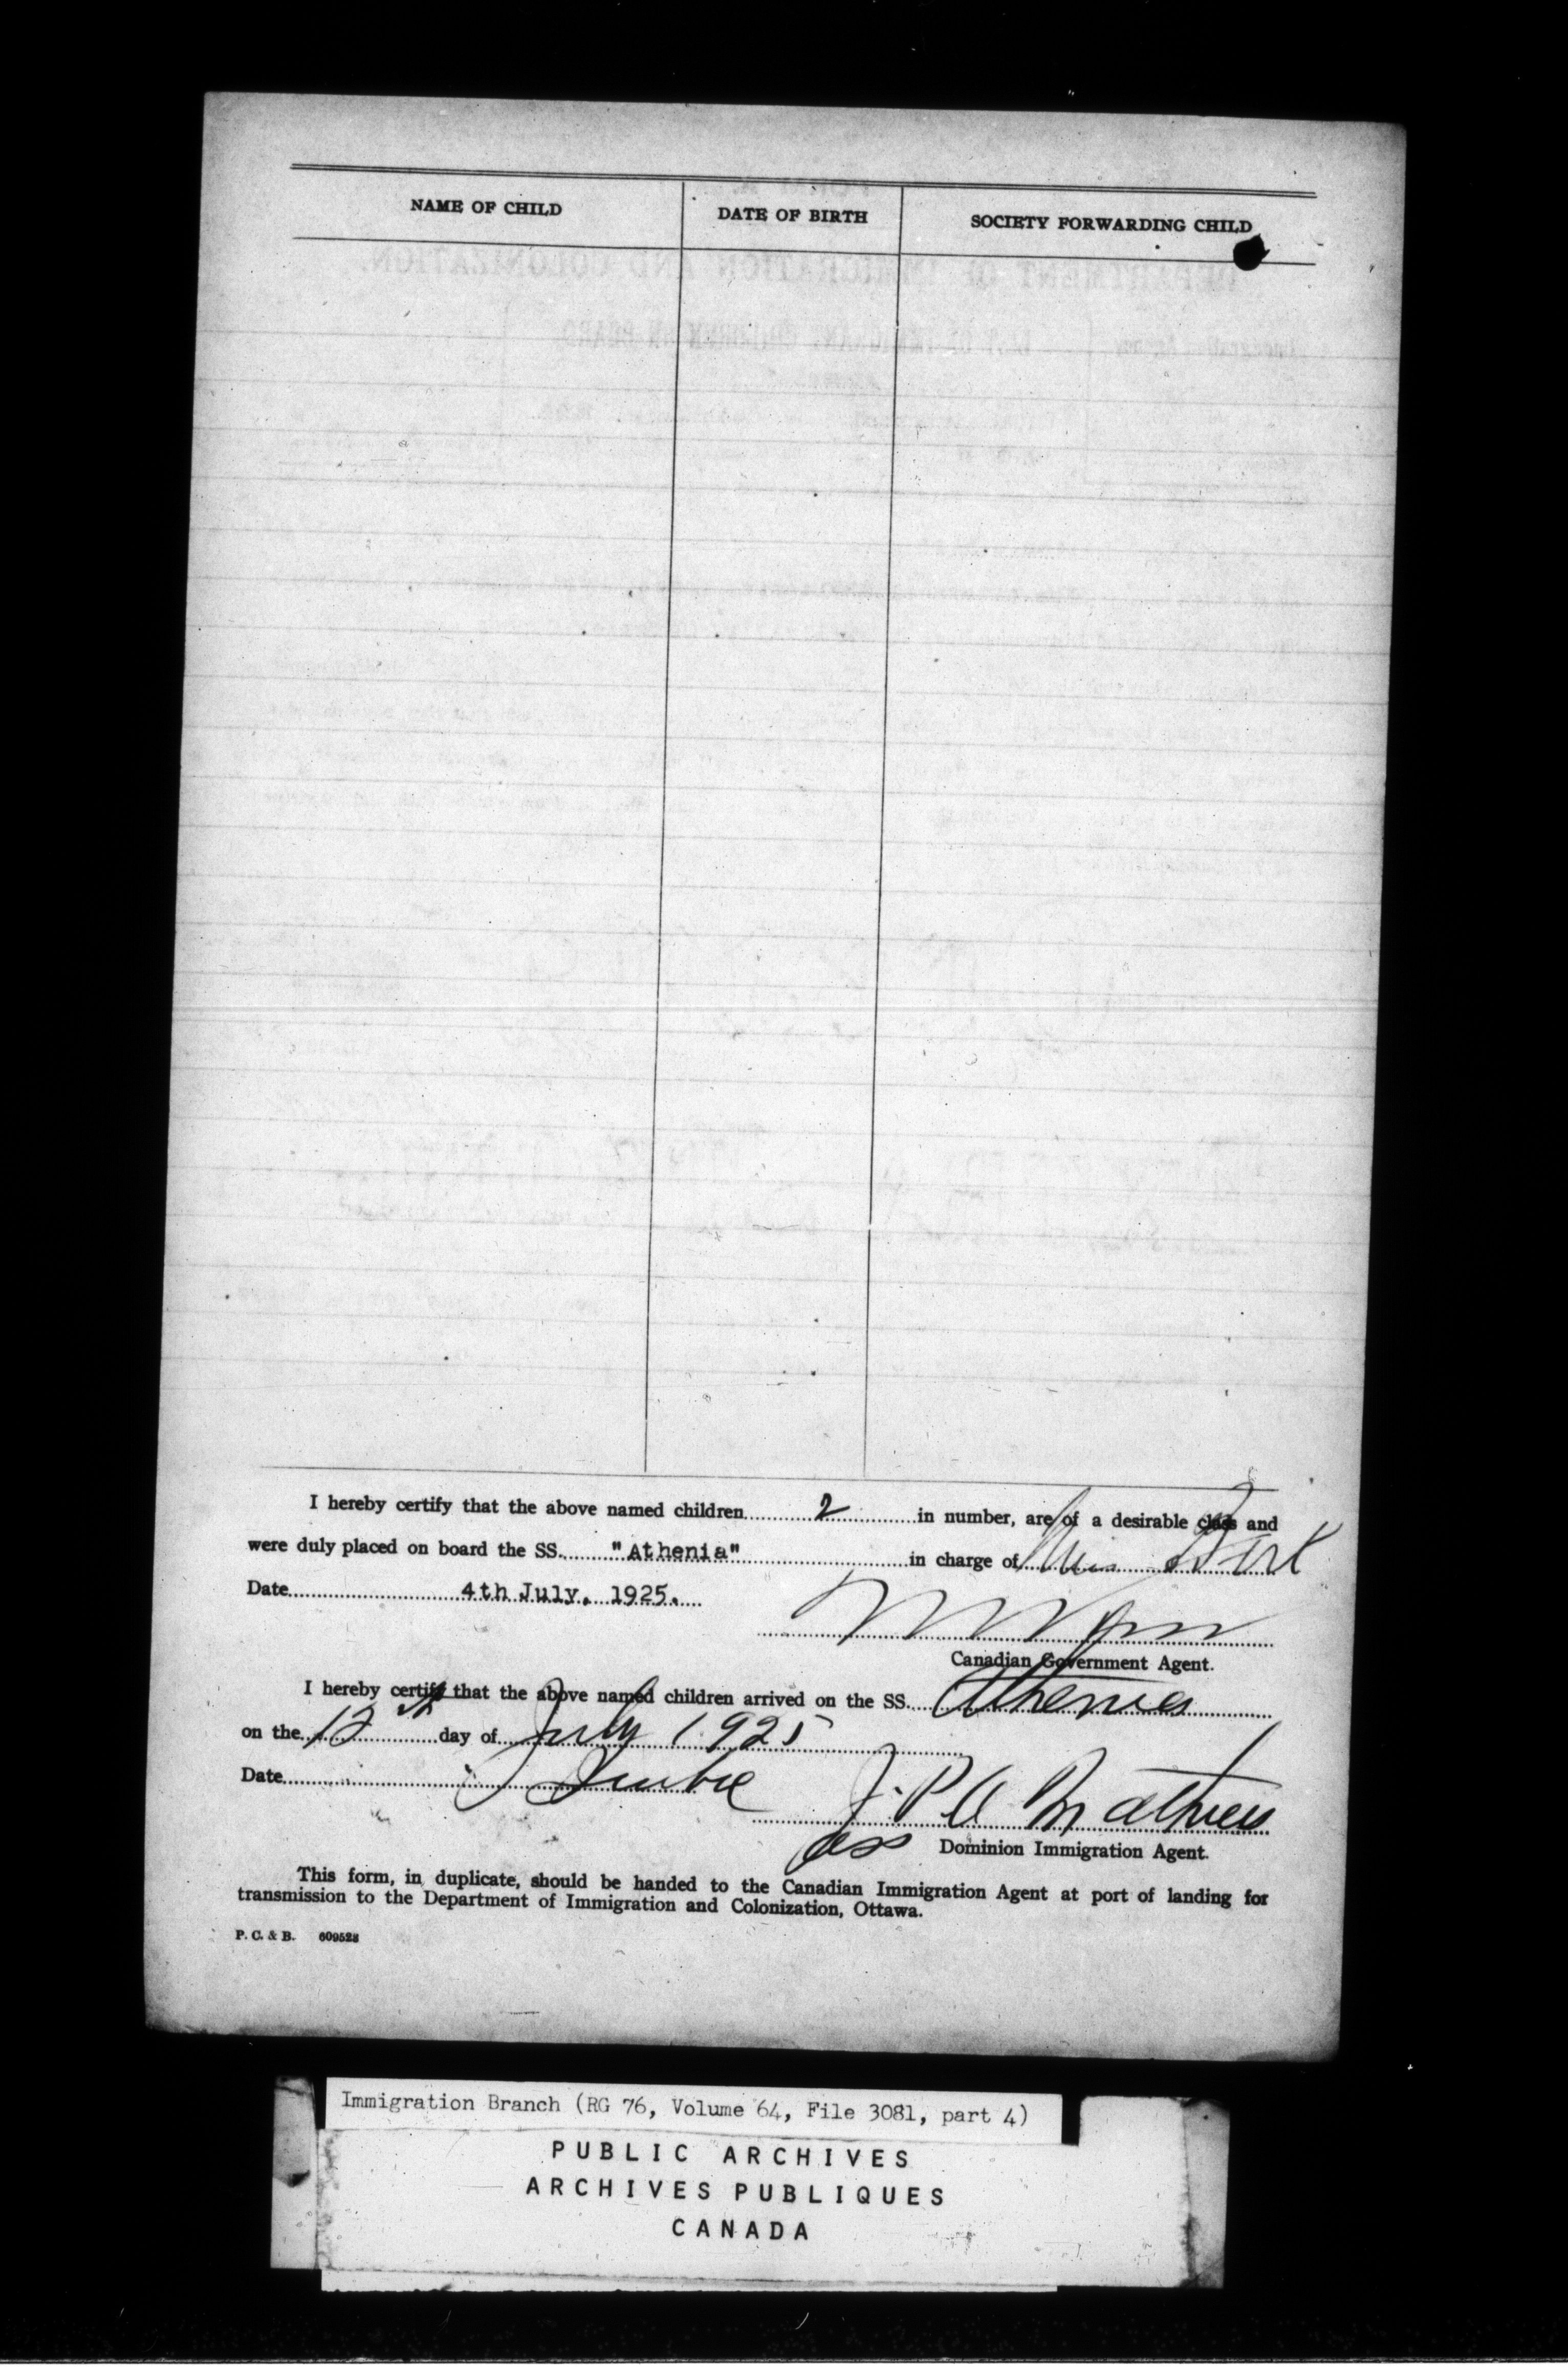 NAME OF CHILD
DATE OF BIRTH
SOCIETY FORWARDING CHILD
I hereby certify that the above named children 2 in number, are of a desirable class and
were duly placed on board the SS. "Athenia" in charge of Miss
Date 4th July, 1925.
Canadian Government Agent.
I hereby certify that the above named children arrived on the SS. Athenia
on the 12th day of July 1925
Date
J. P. A. Mathieu
Dominion Immigration Agent.
This form, in duplicate, should be handed to the Canadian Immigration Agent at port of landing for
transmission to the Department of Immigration and Colonization, Ottawa.
P. C. & B. 609528
Immigration Branch (RG 76, Volume 64, File 3081, part 4)
PUBLIC ARCHIVES
ARCHIVES PUBLIQUES
CANADA